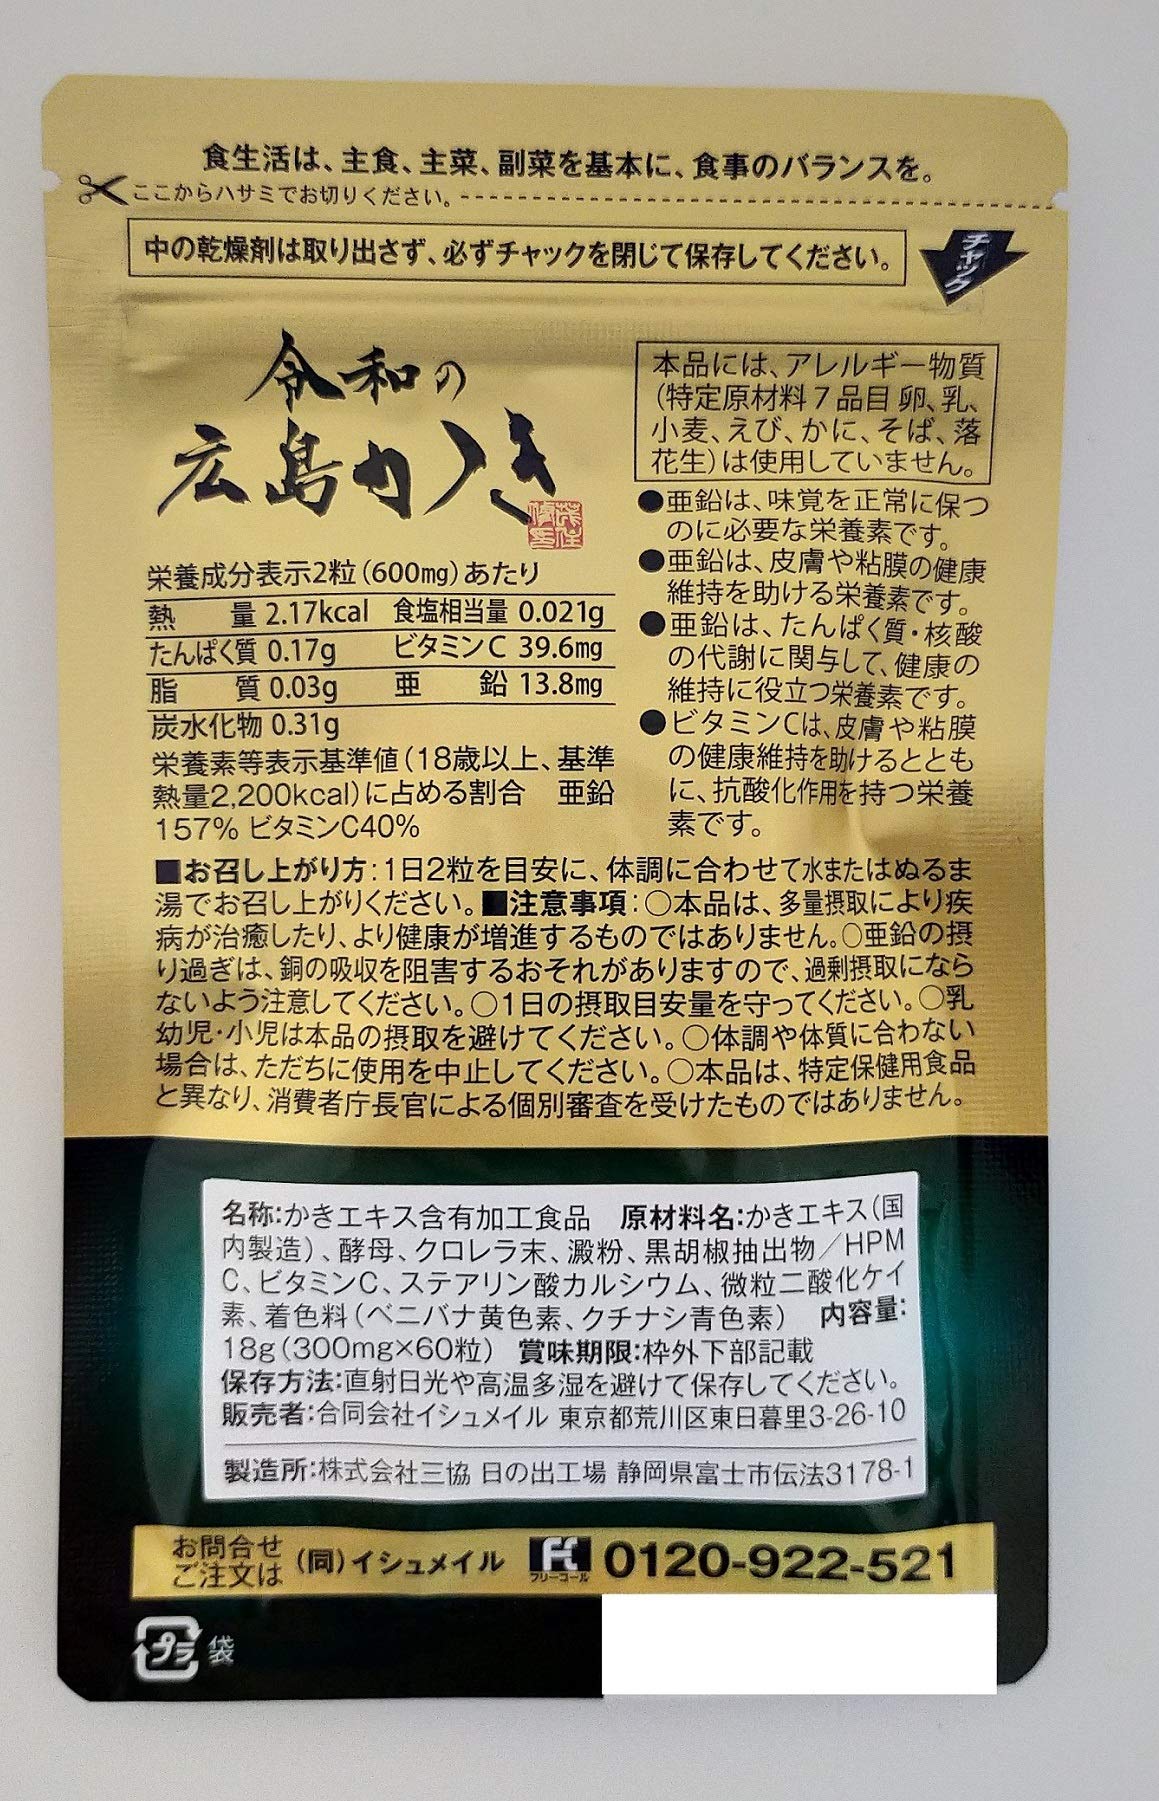 食生活は、主食、主菜、副菜を基本に、食事のバランスを。
ここからハサミでお切りください。
中の乾燥剤は取り出さず、必ずチャックを閉じて保存してください。
チャック
令和の
広島かき
栄養成分表示2粒(600mg)あたり
熱量 2.17kcal 食塩相当量 0.021g
たんぱく質 0.17g ビタミンC 39.6mg
脂質 0.03g 亜鉛 13.8mg
炭水化物 0.31g
栄養素等表示基準値(18歳以上、基準
熱量2,200kcal)に占める割合 亜鉛
157% ビタミンC40%
本品には、アレルギー物質
(特定原材料7品目 卵、乳、
小麦、えび、かに、そば、落
花生)は使用していません。
●亜鉛は、味覚を正常に保つ
のに必要な栄養素です。
●亜鉛は、皮膚や粘膜の健康
維持を助ける栄養素です。
●亜鉛は、たんぱく質・核酸
の代謝に関与して、健康の
維持に役立つ栄養素です。
●ビタミンCは、皮膚や粘膜
の健康維持を助けるととも
に、抗酸化作用を持つ栄養
素です。
■お召し上がり方:1日2粒を目安に、体調に合わせて水またはぬるま
湯でお召し上がりください。■注意事項:○本品は、多量摂取により疾
病が治癒したり、より健康が増進するものではありません。○亜鉛の摂
り過ぎは、銅の吸収を阻害するおそれがありますので、過剰摂取になら
ないよう注意してください。○1日の摂取目安量を守ってください。○乳
幼児・小児は本品の摂取を避けてください。○体調や体質に合わない
場合は、ただちに使用を中止してください。○本品は、特定保健用食品
と異なり、消費者庁長官による個別審査を受けたものではありません。
名称:かきエキス含有加工食品 原材料名:かきエキス(国
内製造)、酵母、クロレラ末、澱粉、黒胡椒抽出物/HPM
C、ビタミンC、ステアリン酸カルシウム、微粒二酸化ケイ
素、着色料(ベニバナ黄色素、クチナシ青色素) 内容量:
18g(300mg×60粒) 賞味期限:枠外下部記載
保存方法:直射日光や高温多湿を避けて保存してください。
販売者:合同会社イシュメイル 東京都荒川区東日暮里3-26-10
製造所:株式会社三協 日の出工場 静岡県富士市伝法3178-1
お問合せ
ご注文は (同)イシュメイル フリーコール 0120-922-521
プラ 袋